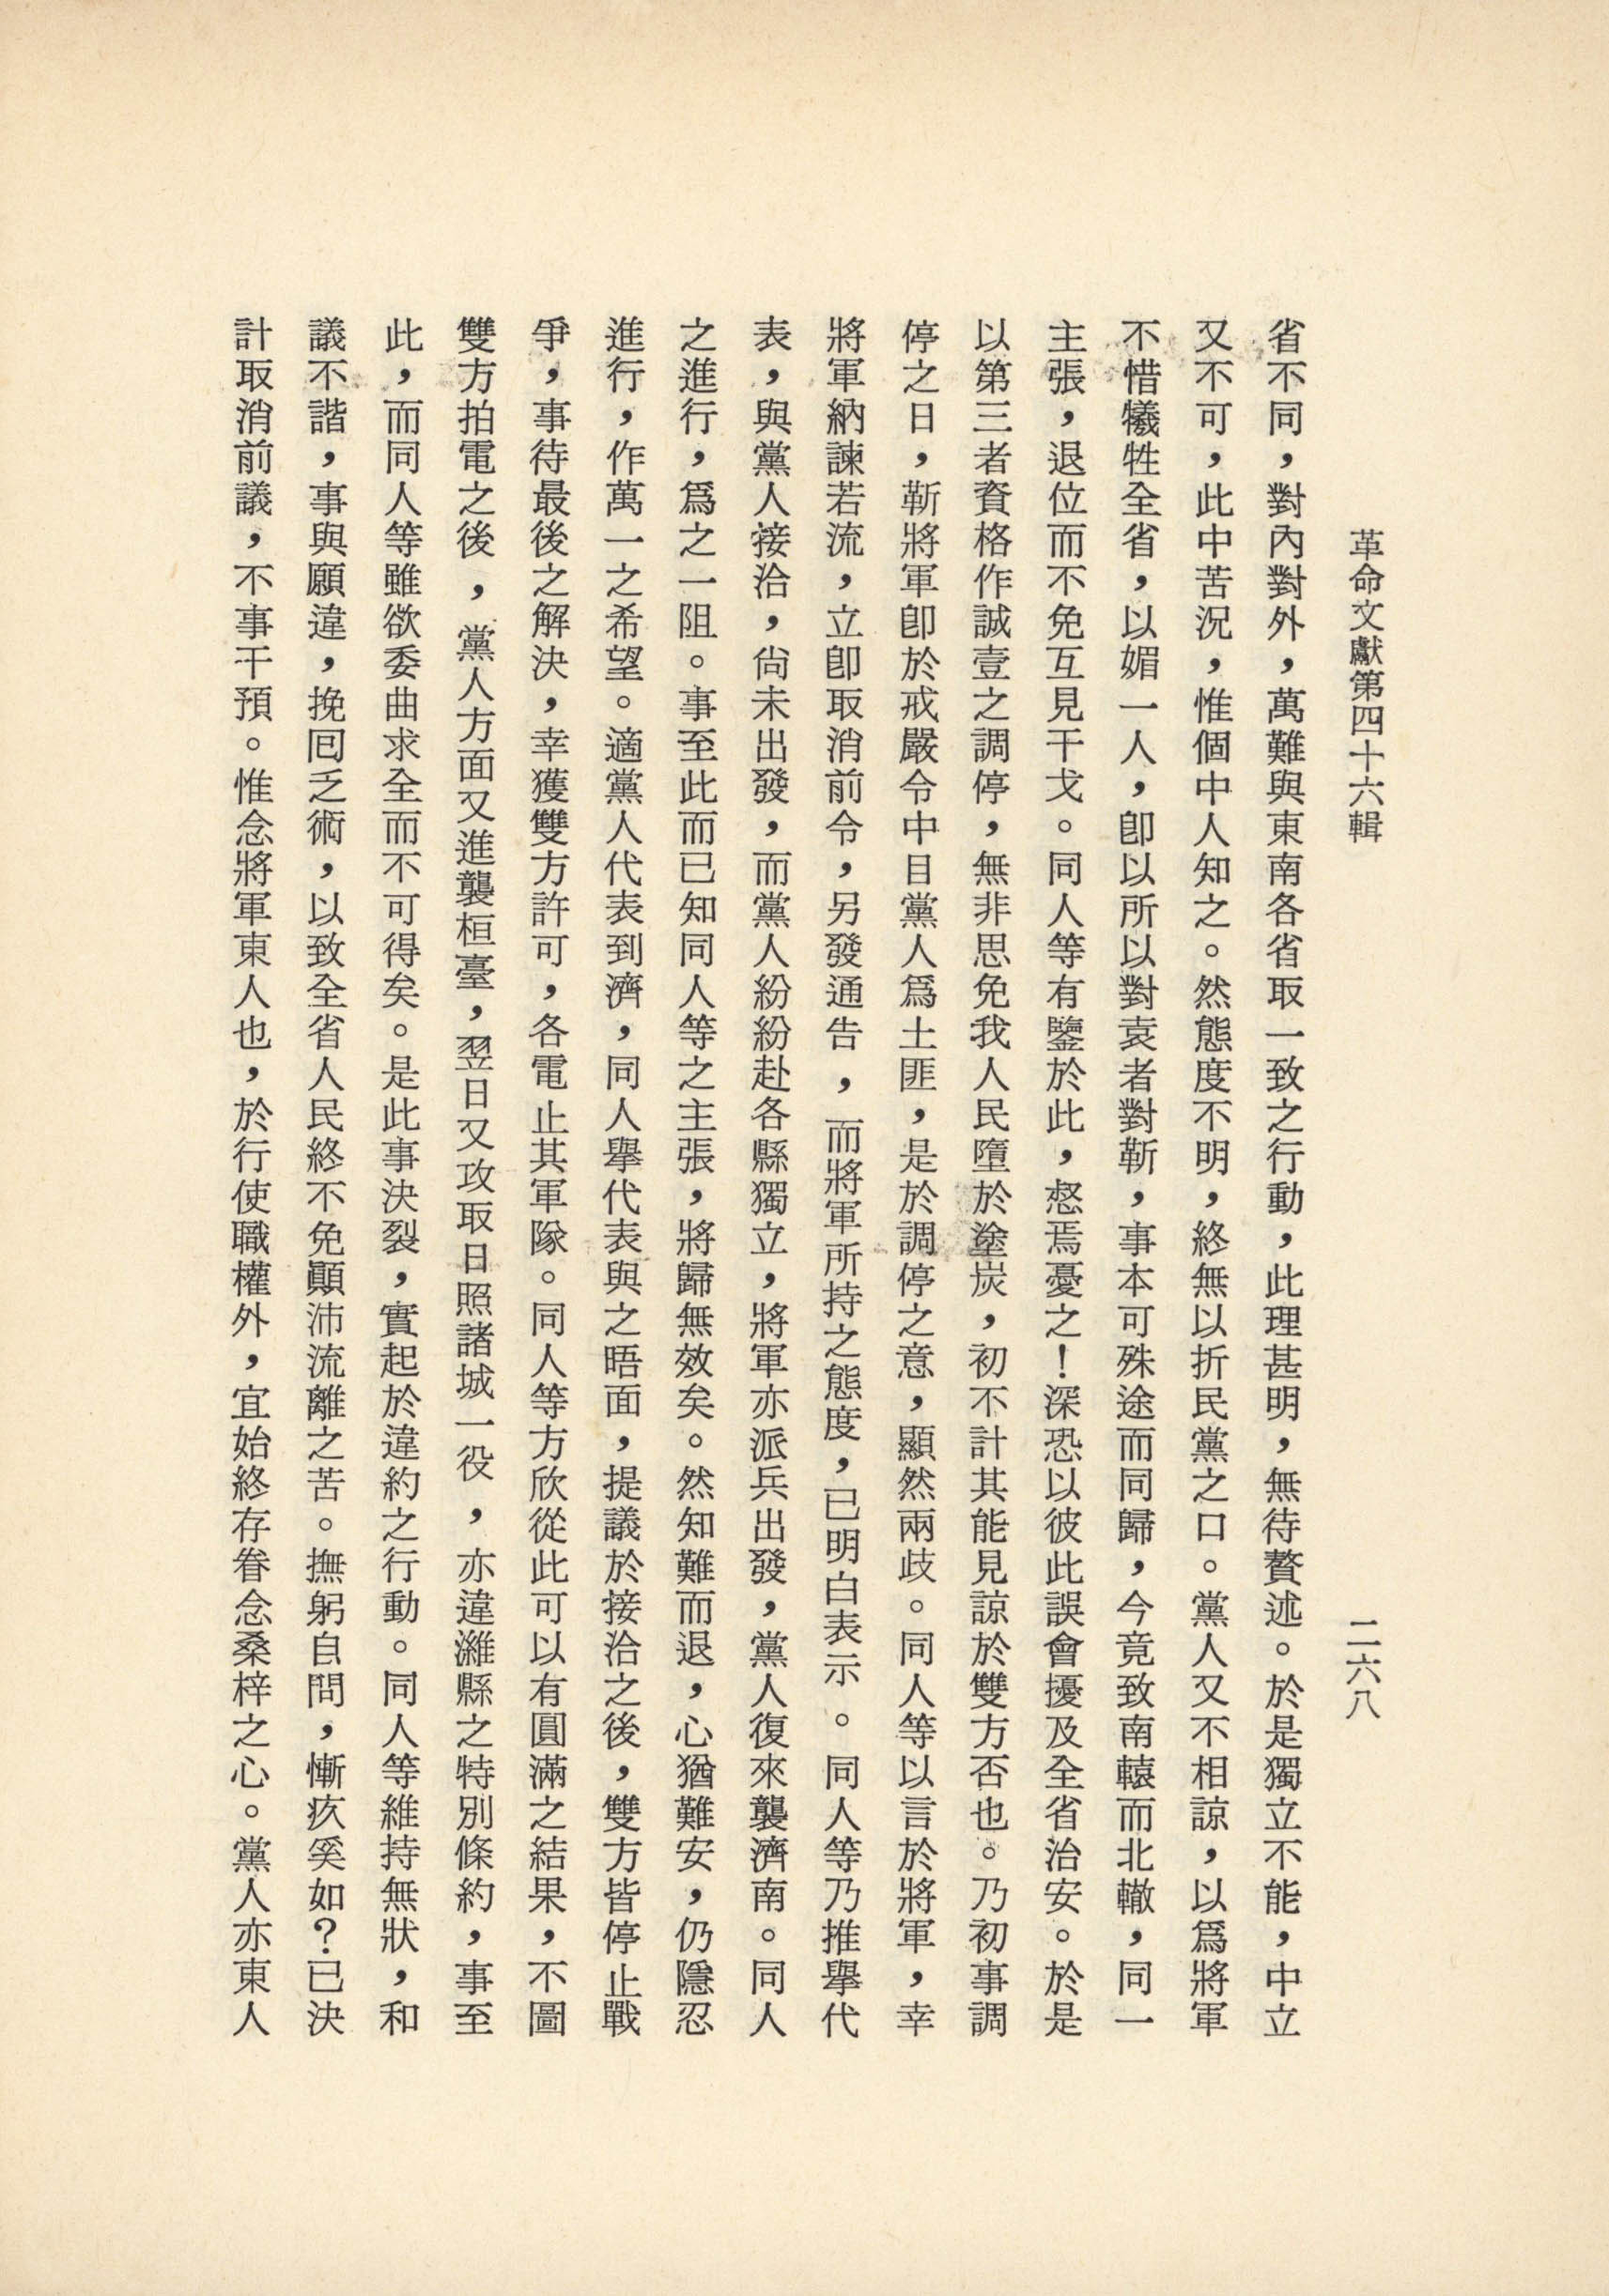 革命文獻第四十六輯
二六八
省不同，對內對外，萬難與東南各省取一致之行動，此理甚明，無待贅述。於是獨立不能，中立
又不可，此中苦況，惟個中人知之。然態度不明，終無以折民黨之口。黨人又不相諒，以爲將軍
不惜犧牲全省，以媚一人，卽以所以對袁者對靳，事本可殊途而同歸，今竟致南轅而北轍，同一
主張，退位而不免互見干戈。同人等有鑒於此，惄焉憂之！深恐以彼此誤會擾及全省治安。於是
以第三者資格作誠壹之調停，無非思免我人民墮於塗炭，初不計其能見諒於雙方否也。乃初事調
停之日，靳將軍卽於戒嚴令中目黨人爲土匪，是於調停之意，顯然兩歧。同人等以言於將軍，幸
將軍納諫若流，立卽取消前令，另發通告，而將軍所持之態度，已明白表示。同人等乃推舉代
表，與黨人接洽，尙未出發，而黨人紛紛赴各縣獨立，將軍亦派兵出發，黨人復來襲濟南。同人
之進行，爲之一阻。事至此而已知同人等之主張，將歸無效矣。然知難而退，心猶難安，仍隱忍
進行，作萬一之希望。適黨人代表到濟，同人舉代表與之晤面，提議於接洽之後，雙方皆停止戰
爭，事待最後之解決，幸獲雙方許可，各電止其軍隊。同人等方欣從此可以有圓滿之結果，不圖
雙方拍電之後，黨人方面又進襲桓臺，翌日又攻取日照諸城一役，亦違濰縣之特別條約，事至
此，而同人等雖欲委曲求全而不可得矣。是此事決裂，實起於違約之行動。同人等維持無狀，和
議不諧，事與願違，挽囘乏術，以致全省人民終不免顚沛流離之苦。撫躬自問，慚疚奚如？已決
計取消前議，不事干預。惟念將軍東人也，於行使職權外，宜始終存眷念桑梓之心。黨人亦東人